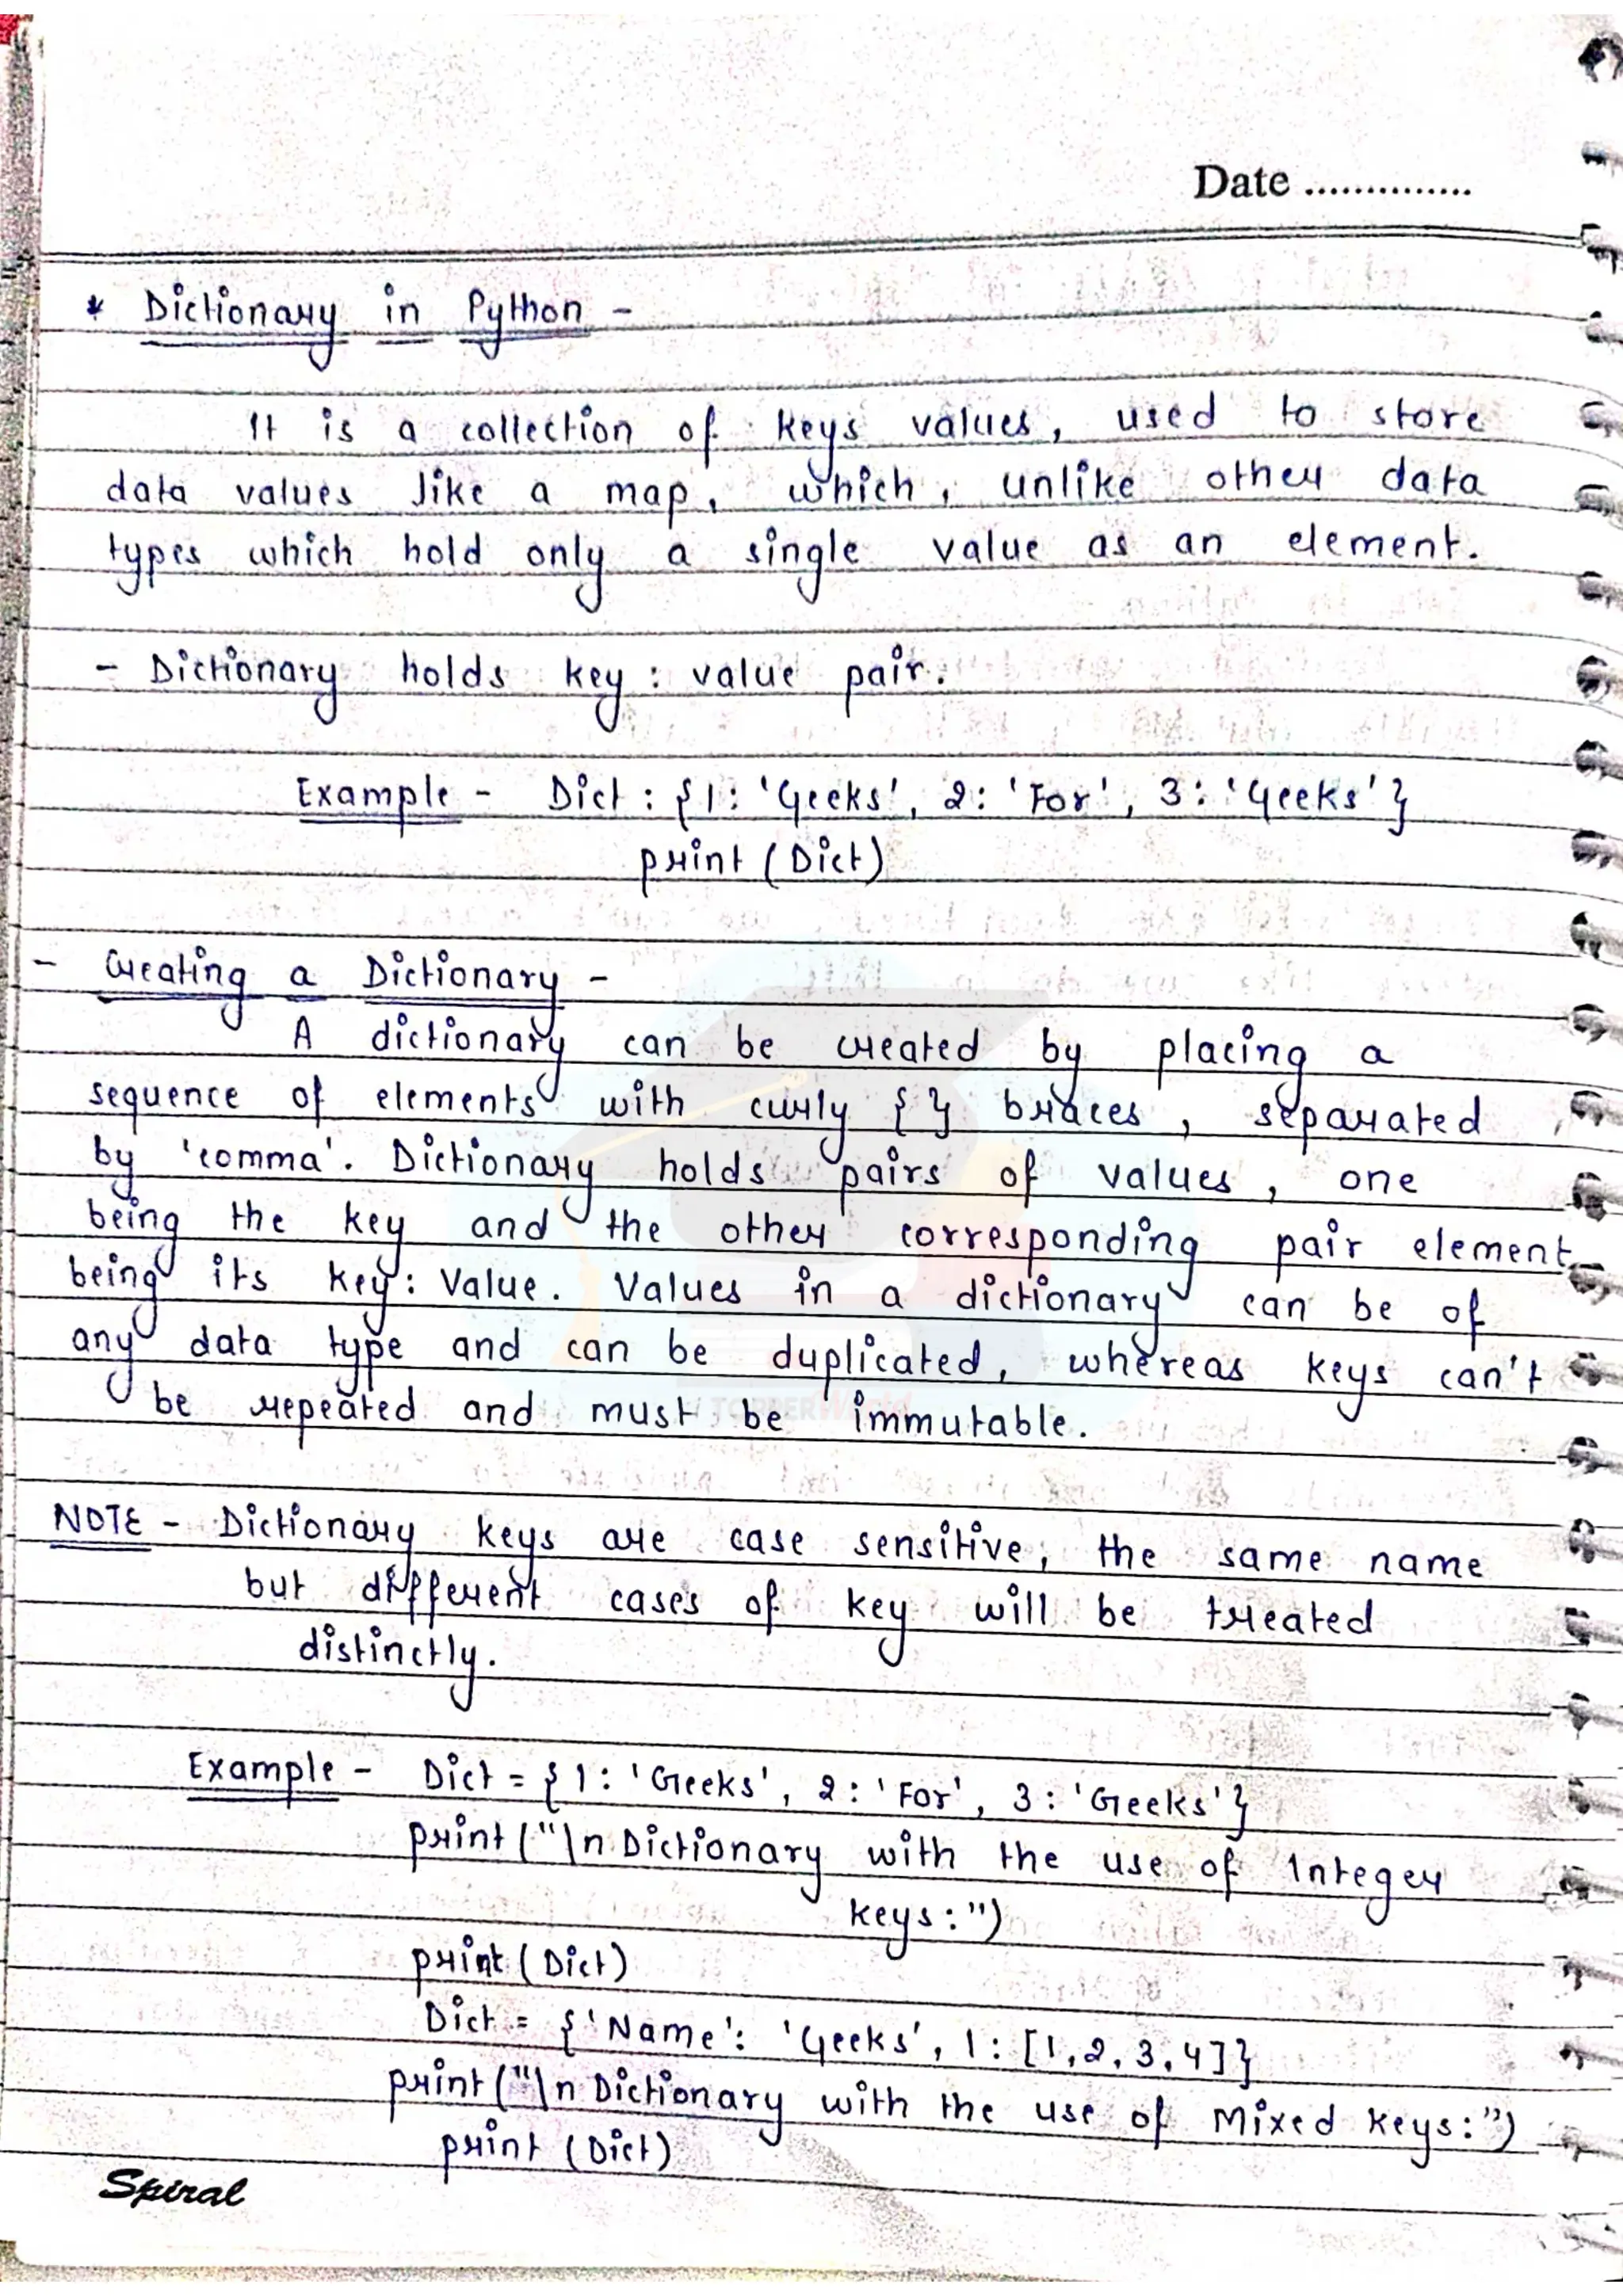 Date ..............
* Dictionary in Python -
It is a collection of keys values, used to store
data values like a map, which, unlike other data
types which hold only a single value as an element.
- Dictionary holds key : value pair.
Example - Dict : {1: 'Geeks', 2: 'For', 3: 'Geeks'}
print (Dict)
- Creating a Dictionary -
A dictionary can be created by placing a
sequence of elements with curly { } braces, separated
by 'comma'. Dictionary holds pairs of values, one
being the key and the other corresponding pair element
being its key: Value. Values in a dictionary can be of
any data type and can be duplicated, whereas keys can't
be repeated and must be immutable.
TOPPERWorld
NOTE - Dictionary keys are case sensitive, the same name
but different cases of key will be treated
distinctly.
Example - Dict = {1: 'Geeks', 2: 'For', 3: 'Geeks'}
print ("\n Dictionary with the use of Integer
keys:")
print (Dict)
Dict = {'Name': 'Geeks', 1: [1,2,3,4]}
print ("\n Dictionary with the use of Mixed keys:")
print (Dict)
Spiral